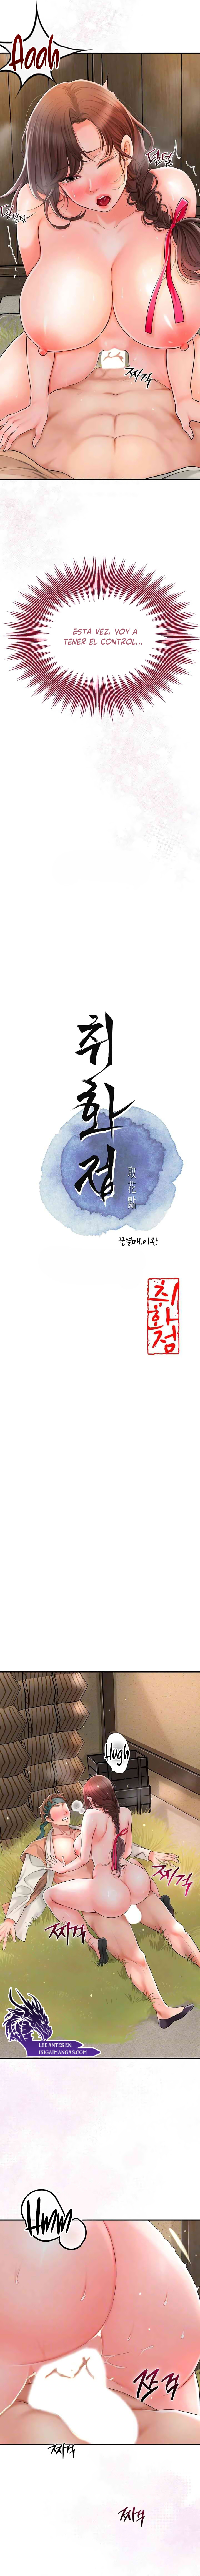 Aooh
덜덜
덜덜
찌걱
ESTA VEZ, VOY A
TENER EL CONTROL...
취화점
取花點
꿀열매.이완
취화점
Hugh
찌걱
찌걱
LEE ANTES EN:
IKIGAIMANGAS.COM
Hmm
쯔걱
찌걱
찌걱